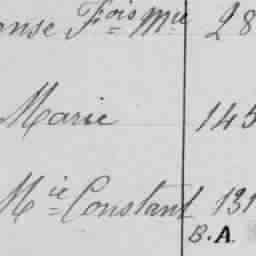 onse Fois Mie 28
Marie 145
Mie Constant 131
B.A.